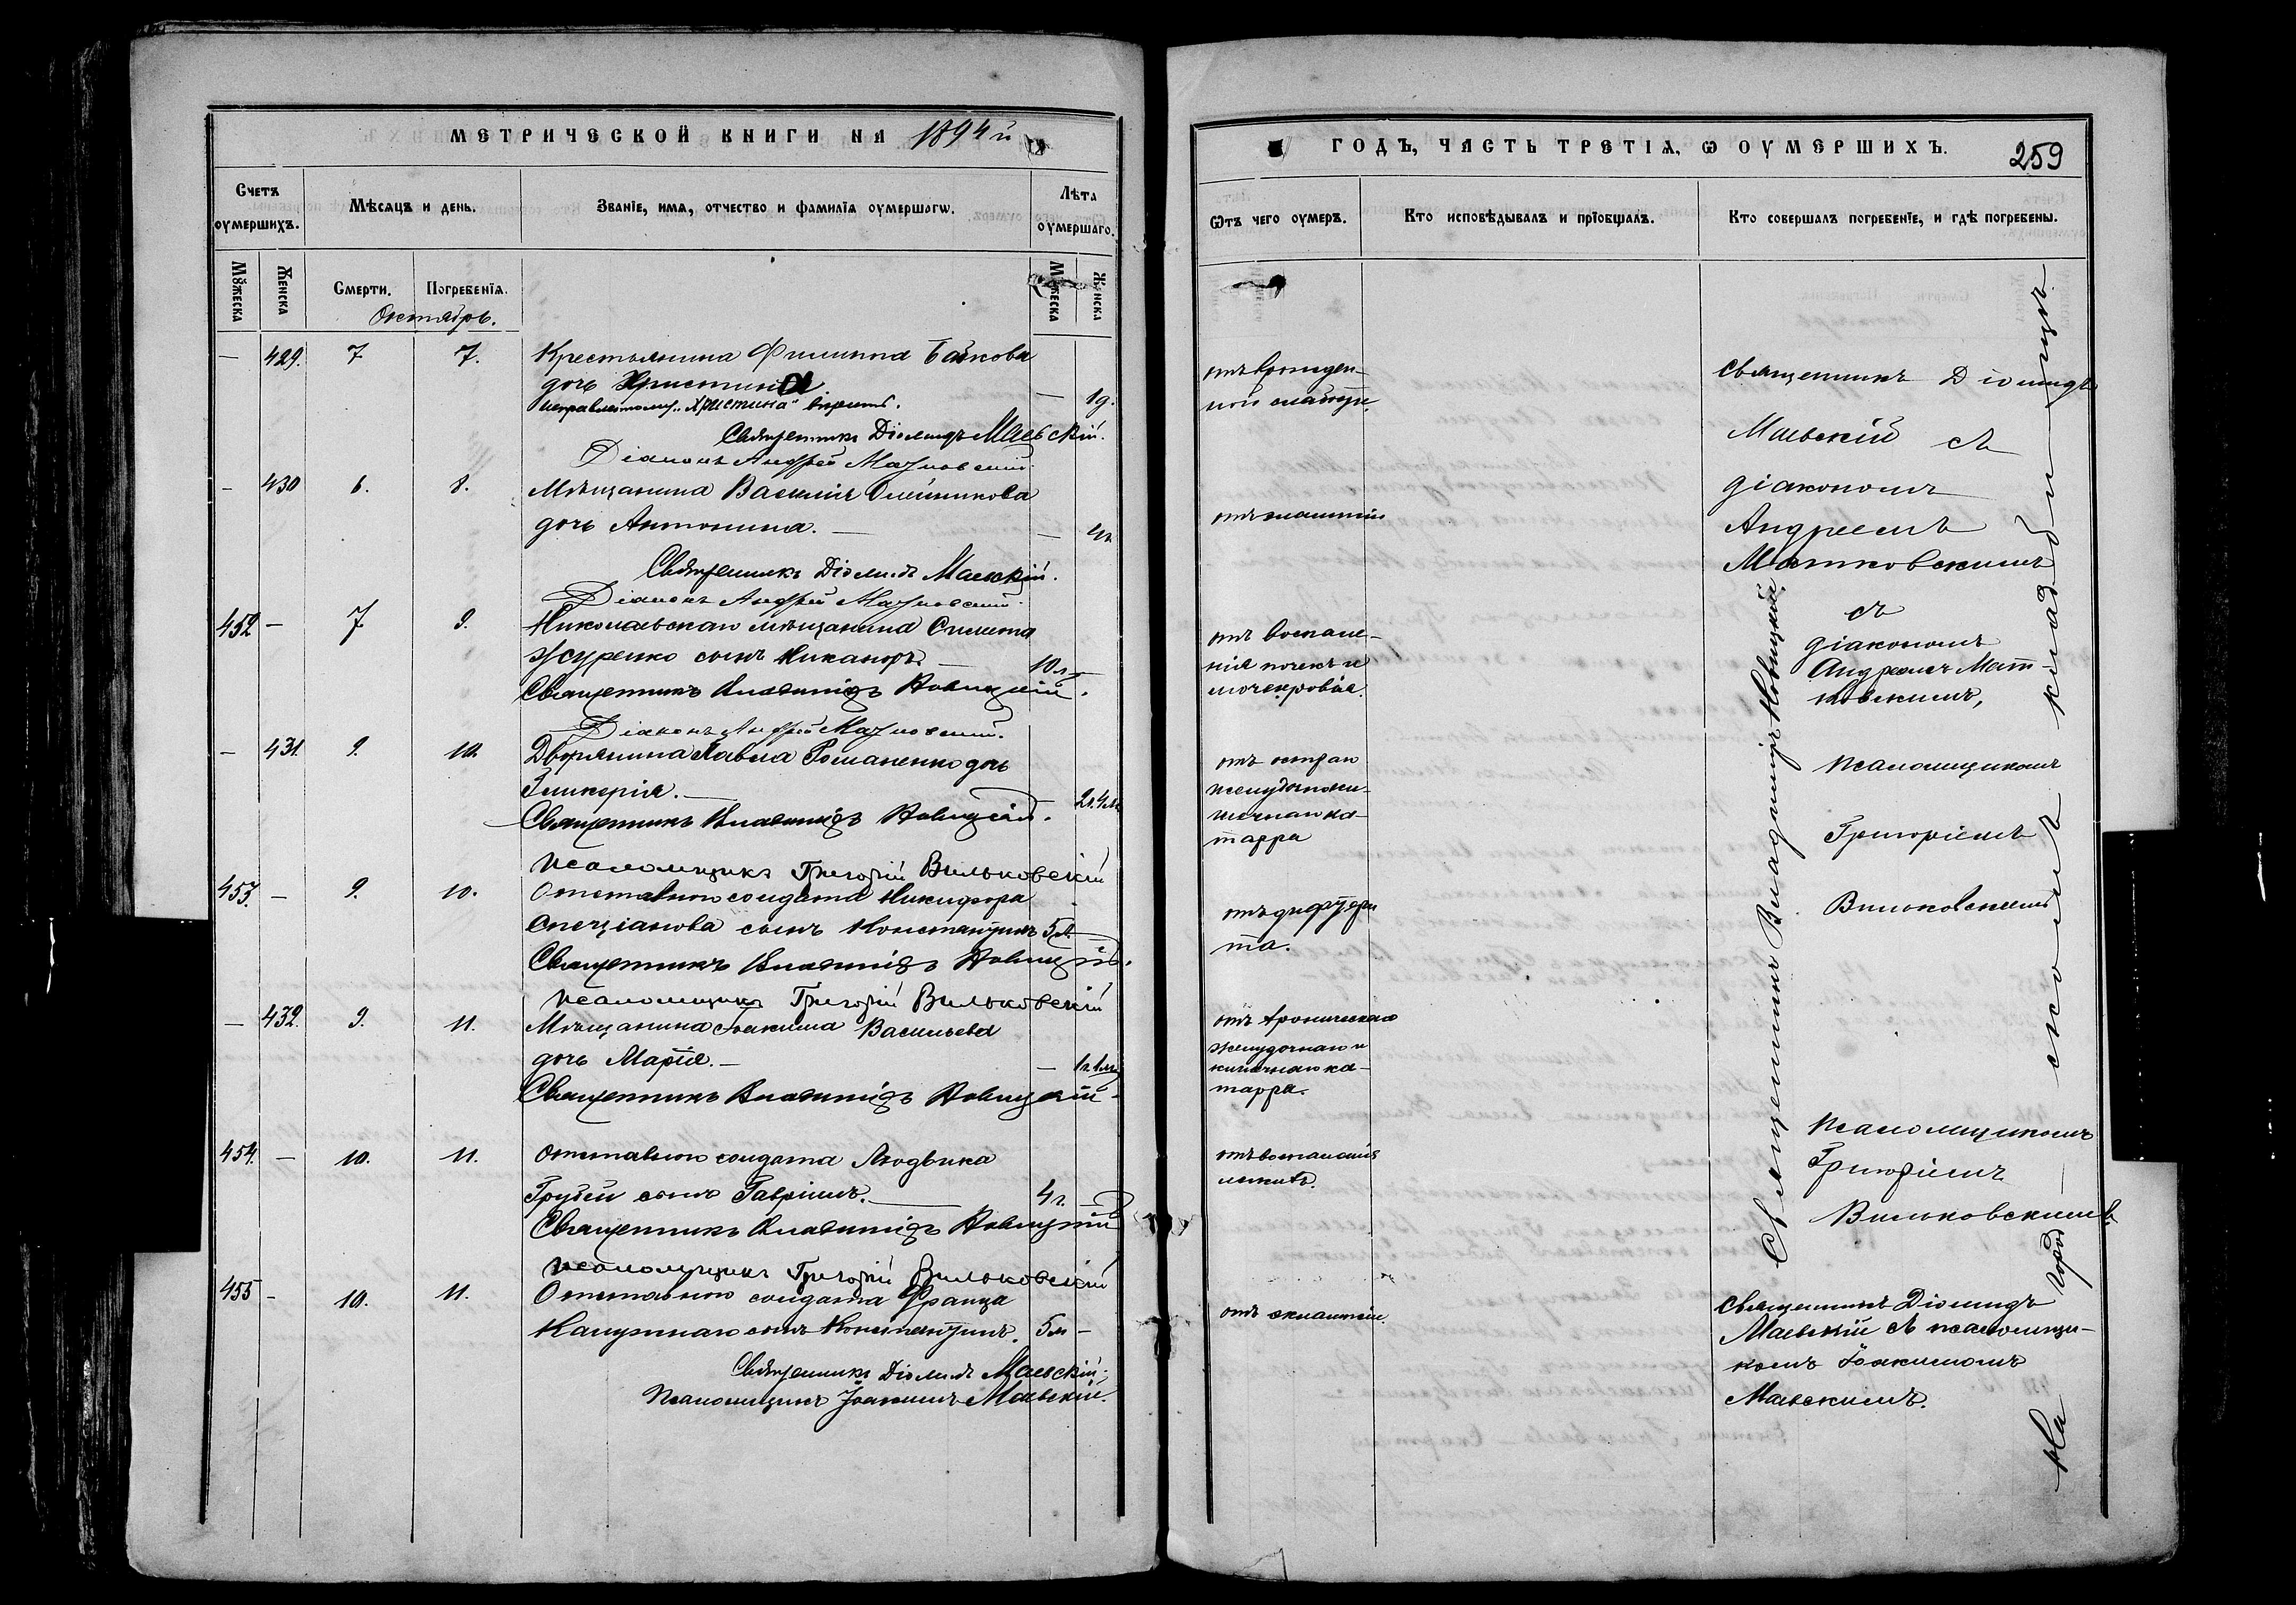 МЕТРИЧЕСКОЙ КНИГИ НА 1894 й
Счетъ оумершихъ.
Мѣсяцъ и день.
Званіе, имя, отчество и фамилія оумершагѡ.
Лѣта оумершаго.
Мужеска
Женска
Смерти.
Погребенія.
Мужеска
Женска
Октябрь.
— 429. 7 7. Крестьянина Филиппа Байкова
дочь Христина. — 1 д.
исправленному „Христина" вѣрить.
Священникъ Діомидъ Маевскій.
Діаконъ Андрей Матковскій.
— 430 6. 8. Мѣщанина Василія Олейникова
дочь Антонина. —
Священникъ Діомидъ Маевскій.
Діаконъ Андрей Матковскій.
452 — 7 9. Николаевскаго мѣщанина
Журенко сынъ Никаноръ. — 10 л. —
Священникъ Владиміръ Новицкій.
Діаконъ Андрей Матковскій.
— 431. 9. 10. Дворянина Павла Романенко дочь
Гликерія. — 2 л. 4 м.
Священникъ Владиміръ Новицкій.
Псаломщикъ Григорій Вильковскій
453. — 9. 10. Отставного солдата Никифора
сынъ Константинъ 5 л.
Священникъ Владиміръ Новицкій.
Псаломщикъ Григорій Вильковскій
— 432. 9. 11. Мѣщанина Іоакима Васильева
дочь Марія. — — 1 г. 1 м.
Священникъ Владиміръ Новицкій.
454. — 10. 11. Отставного солдата Людвика
сынъ Гавріилъ. — 4 г. —
Священникъ Владиміръ Новицкій
Псаломщикъ Григорій Вильковскій
455 — 10. 11. Отставного солдата Франца
сынъ Константинъ. 5 м —
Священникъ Діомидъ Маевскій;
Псаломщикъ Іоакимъ Маевскій.
ГОДЪ, ЧАСТЬ ТРЕТІЯ, Ѡ ОУМЕРШИХЪ.
259
Ѿтъ чего оумеръ.
Кто исповѣдывалъ и пріобщалъ.
Кто совершалъ погребеніе, и гдѣ погребены.
отъ врожден-
ной слабости.
отъ эклампсіи
отъ воспале-
нія почекъ и
мочекровія.
отъ остраго
желудочноки-
шечнаго ка-
тарра
отъ дифтери
та.
отъ хроническаго
желудочнаго и
кишечнаго ка-
тарра.
отъ воспаленія
легкихъ.
отъ эклампсіи
Священникъ Діомидъ
Маевскій съ
діакономъ
Андреемъ
Матковскимъ
съ
діакономъ
Андреемъ Мат-
ковскимъ,
псаломщикомъ
Григоріемъ
Вильковскимъ
псаломщикомъ
Григоріемъ
Вильковскимъ.
Священникъ Діомидъ
Маевскій съ псаломщи-
комъ Іоакимомъ
Маевскимъ.
Священникъ Владиміръ Новицкій
На город—скомъ кладбищѣ